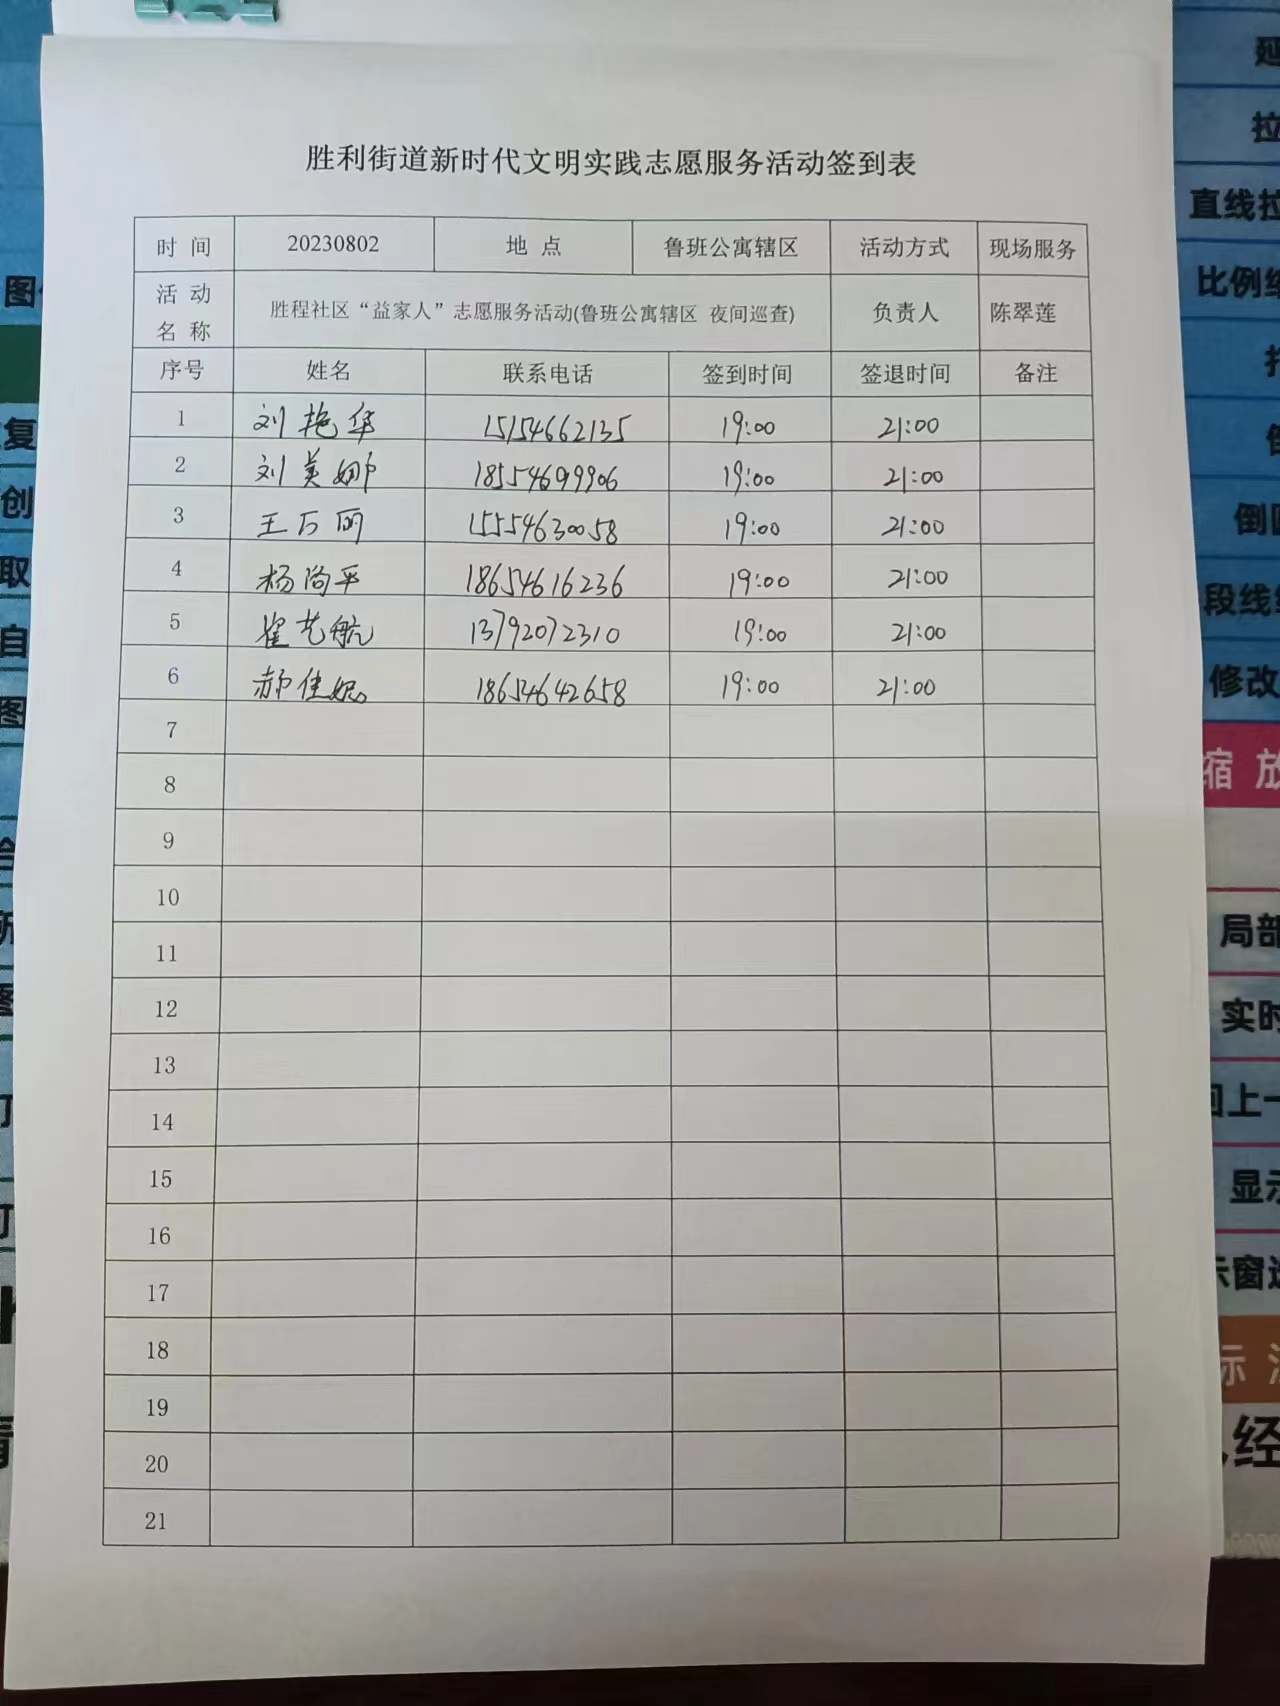 胜利街道新时代文明实践志愿服务活动签到表
时 间 20230802 地 点 鲁班公寓辖区 活动方式 现场服务
活 动 名 称 胜程社区“益家人”志愿服务活动(鲁班公寓辖区 夜间巡查) 负责人 陈翠莲
序号 姓名 联系电话 签到时间 签退时间 备注
1 刘艳华 15154662135 19:00 21:00
2 刘美娜 18554699906 19:00 21:00
3 王万丽 15554630058 19:00 21:00
4 杨尚平 18654616236 19:00 21:00
5 崔艺航 13792072310 19:00 21:00
6 郝佳妮 18654642658 19:00 21:00
7
8
9
10
11
12
13
14
15
16
17
18
19
20
21
直线拉
比例缩
倒
段线
修改
缩 放
局部
实时
回上一
显示
示窗
标
经
图
复
创
取
自
图